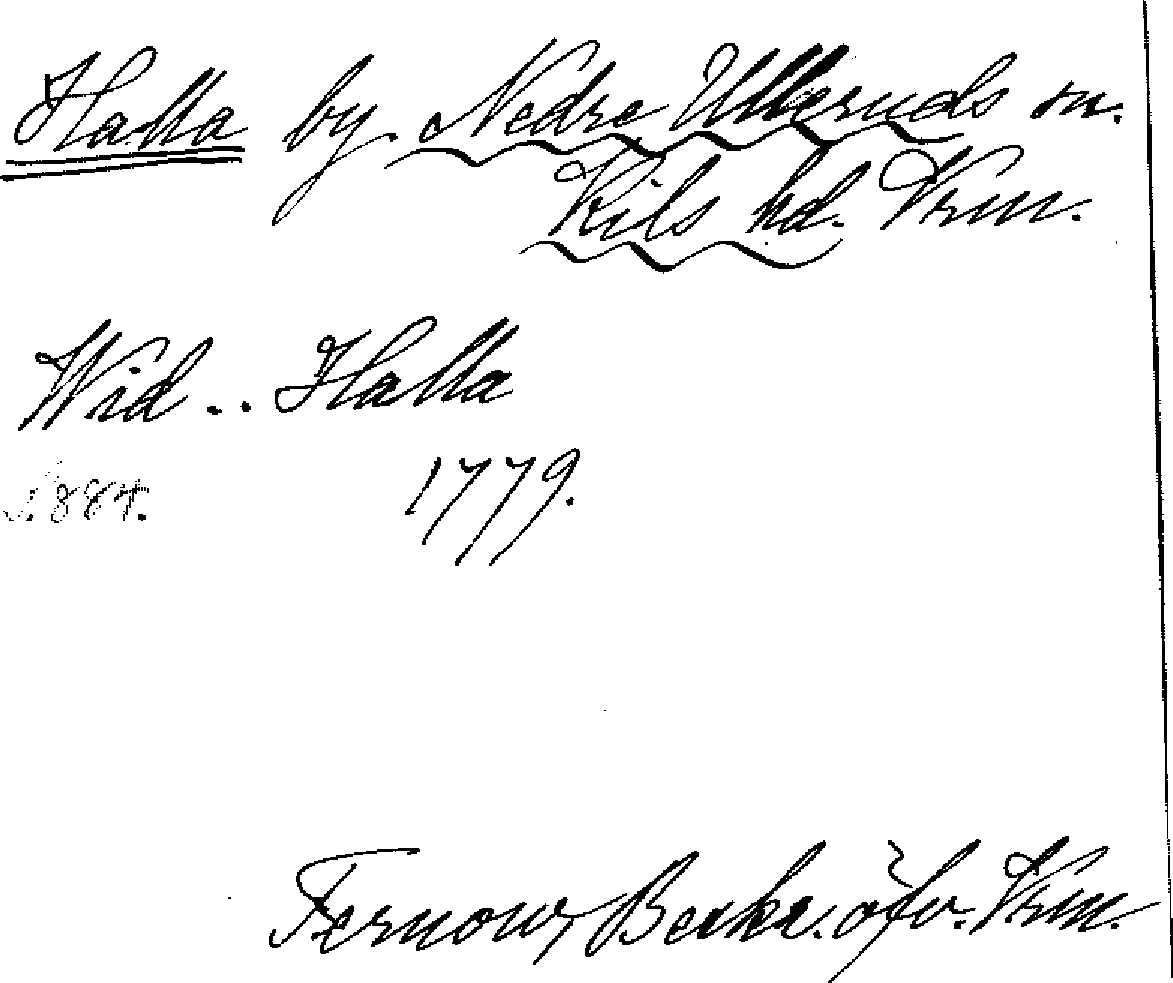 Halla by. Nedre Ulleruds sn.
Kils hd. Vrm.
Wid .. Halla
S. 884. 1779.
Fernow, Beskr. öfv. Vrm.